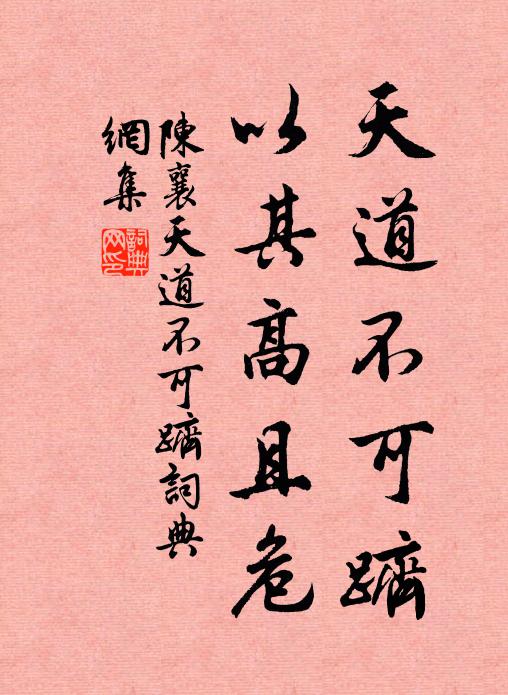 天道不可躋
以其高且危
陳襄天道不可躋詞典
網集
詞典網印